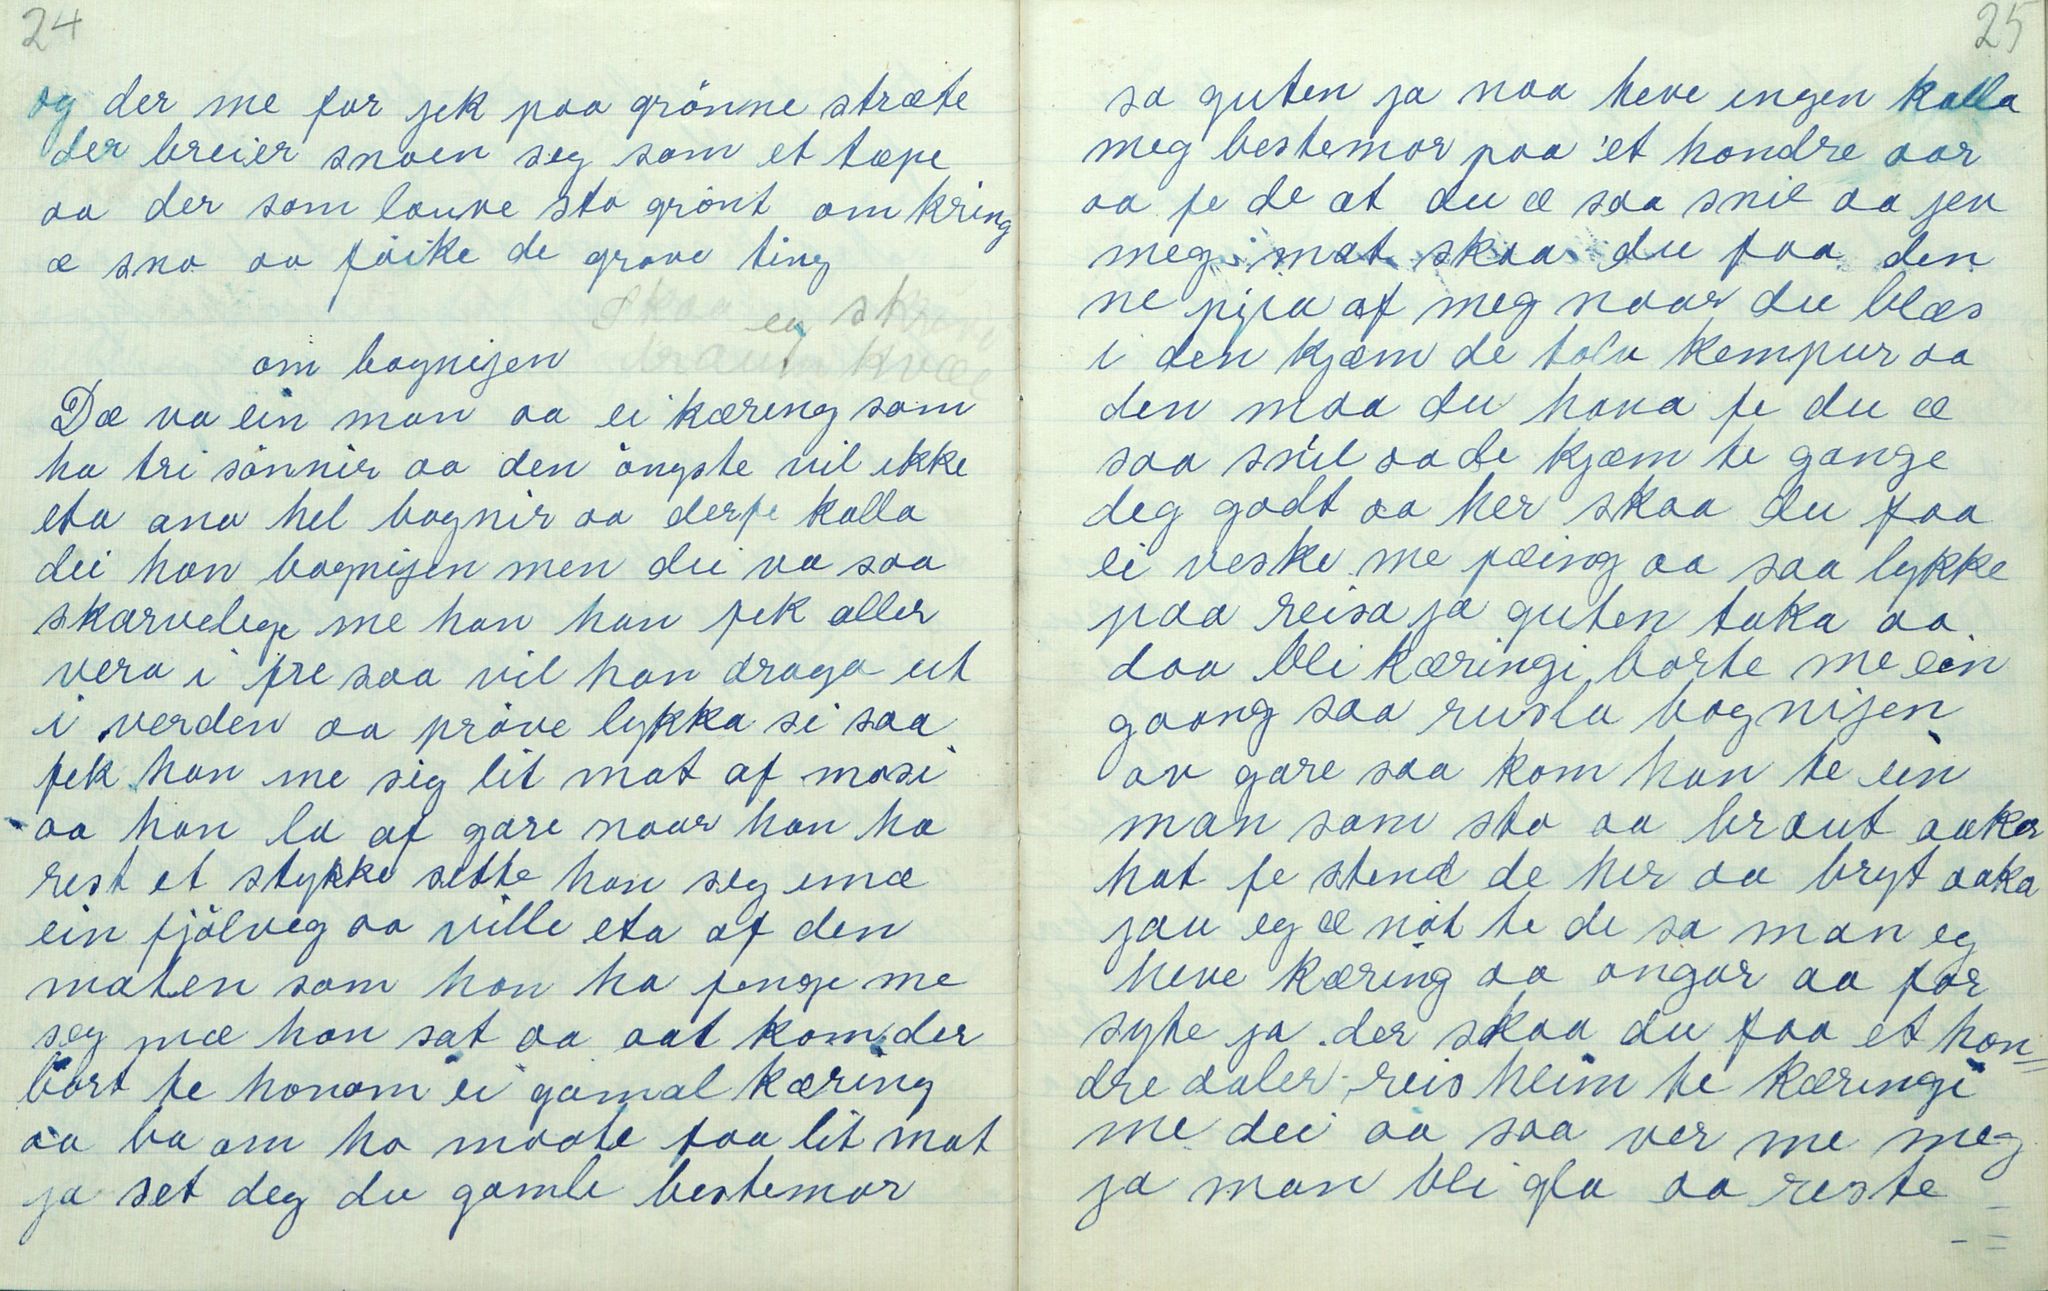 24
og der me for jek paa grönne stræte
der breier snoen seg som et tæpe
aa der som lauve sto grönt omkring
æ sno aa föike de grove ting
Skaa eg skrive
om bognijen
Dæ va ein man aa ei kæring som
ha tri sönnir aa den öngste vil ikke
eta ana hel bognir aa derfe kalla
dei han bognijen men dei va saa
skarvelege me han han fek aller
vera i fre saa vil han draga ut
i verden aa pröve lykka si saa
fek han me sig lit mat af mosi
aa han la af gare naar han ha
rest et stykke sette han seg imæ
ein fjölveg aa ville eta af den
maten som han ha fenge me
seg mæ han sat aa aat kom der
bort te honom ei gamal kæring
aa ba om ho maate faa lit mat
ja set deg du gamle bestemor
25
sa guten ja naa heve ingen kalla
meg bestemor paa et hondre aar
aa fe de at du æ saa snil aa jev
meg mat skaa du faa den
ne pipa af meg naar du blæs
i den kjæm de tolv kempur aa
den maa du hava fe du æ
saa snil aa de kjæm te gange
deg godt aa her skaa du faa
ei veske me pæing aa saa lykke
paa reisa ja guten taka aa
daa bli kæringi borte me ein
gaang saa rusla bognijen
av gare saa kom han te ein
man som sto aa braut aaker
hat fe stend de her aa bryt aaka
jau eg æ nöt te de sa man eg
heve kæring aa ongar aa for
syte ja der skaa du faa et hon=
dre daler reis heim te kæringi
me dei aa saa ver me meg
ja man bli gla aa reste